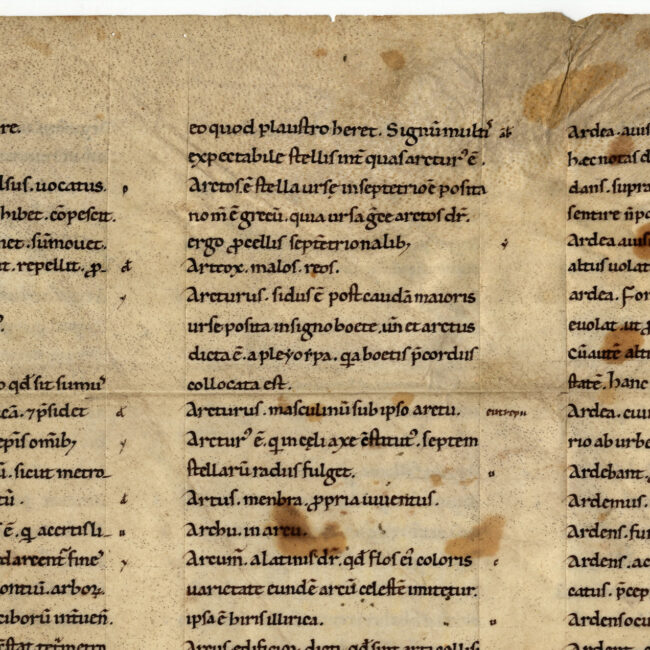 re.
lsus. uocatus.
hibet. cōpescit.
net. sūmouet.
it. repellit. ꝓ-
o qđ sit sumu᷒
eā. ⁊ p̄sidet
ep̄is omībꝫ
ū. sicut metro-
tū.
s ē. q acertis li-
darcent᷒ fine᷒
ontiū. arboꝝ.
eo quod plaustro heret. Signū multi᷒
expectabile stellis int̄ quas arctur᷒ ē.
Arctos ē stella urse in septētriōe posita
nom̄ ē grecū. quia ursa g̅ce arctos dr̄.
ergo ꝓcellis septētrionalibꝫ
Arctox. malos. reos.
Arcturus. sidus ē post caudā maioris
urse posita in signo boete. uñ et arctus
dicta ē. a pleyorpa. qa boetis p̄cordiis
collocata est.
Arcturus. masculinū sub ipso arctu.
Arctur᷒ ē. q in celi axe c̄stitut᷒. septem
stellarū radiis fulget.
Artus. menbra. ꝓpria iuuentus.
Archu. in arcu.
Arcum̄. a latinis dr̄. qđ flos ei᷒ coloris
uarietate eundē arcū celestē imitetur.
ipsa ē hiris illirica.
Ardea. auis
hec notas d
dans. supra
sentire n̄ po
Ardea auis
altius uolat
ardea. For
euolat. ut ꝓ
Cū autē alti
statē. hanc
Ardea. ciui
rio ab urbe
Ardebant.
Ardemus.
Ardens. fur
Ardens. ac
catus. p̄cep
Ardens ocu